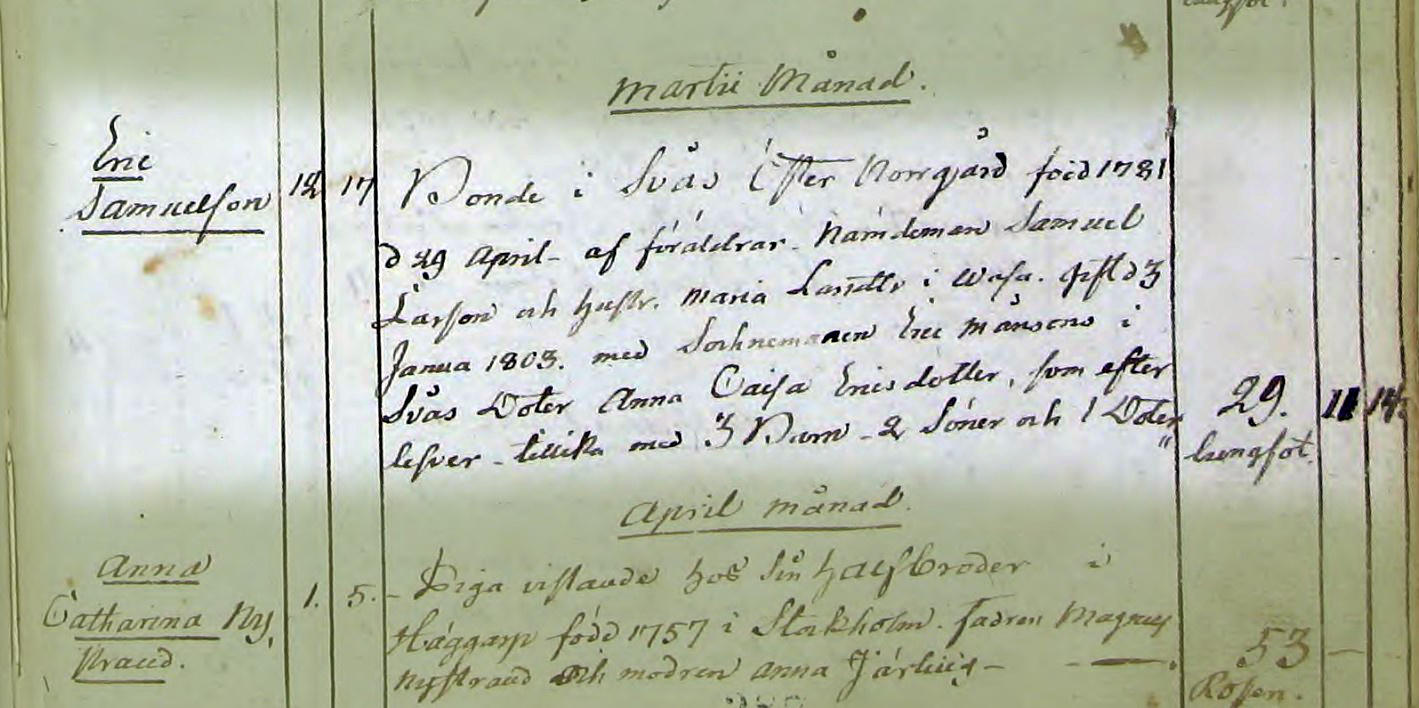 Martii Månad.
Eric
Samuelson 12 17 Bonde i Svås Öfter Norrgård född 1781
d 29 April - af föräldrar Nämdeman Samuel
Larson och hustr. Maria Larsdtr i Wasa. gift d 3
Janua 1803. med Sochnemanen Eric Månsons i
Svås Doter Anna Caisa Ericsdotter, som efter
lefver - tillika med 3 Barn - 2 Söner och 1 Doter
29. 11
Lungsot.
April månad.
Anna
Catharina Ny,
strand.
1. 5. - Piga vistande hos sin halfbroder i
Häggarp född 1757 i Stockholm. fadren Magnus
Nystrand och modren Anna
53 —
Rosen.